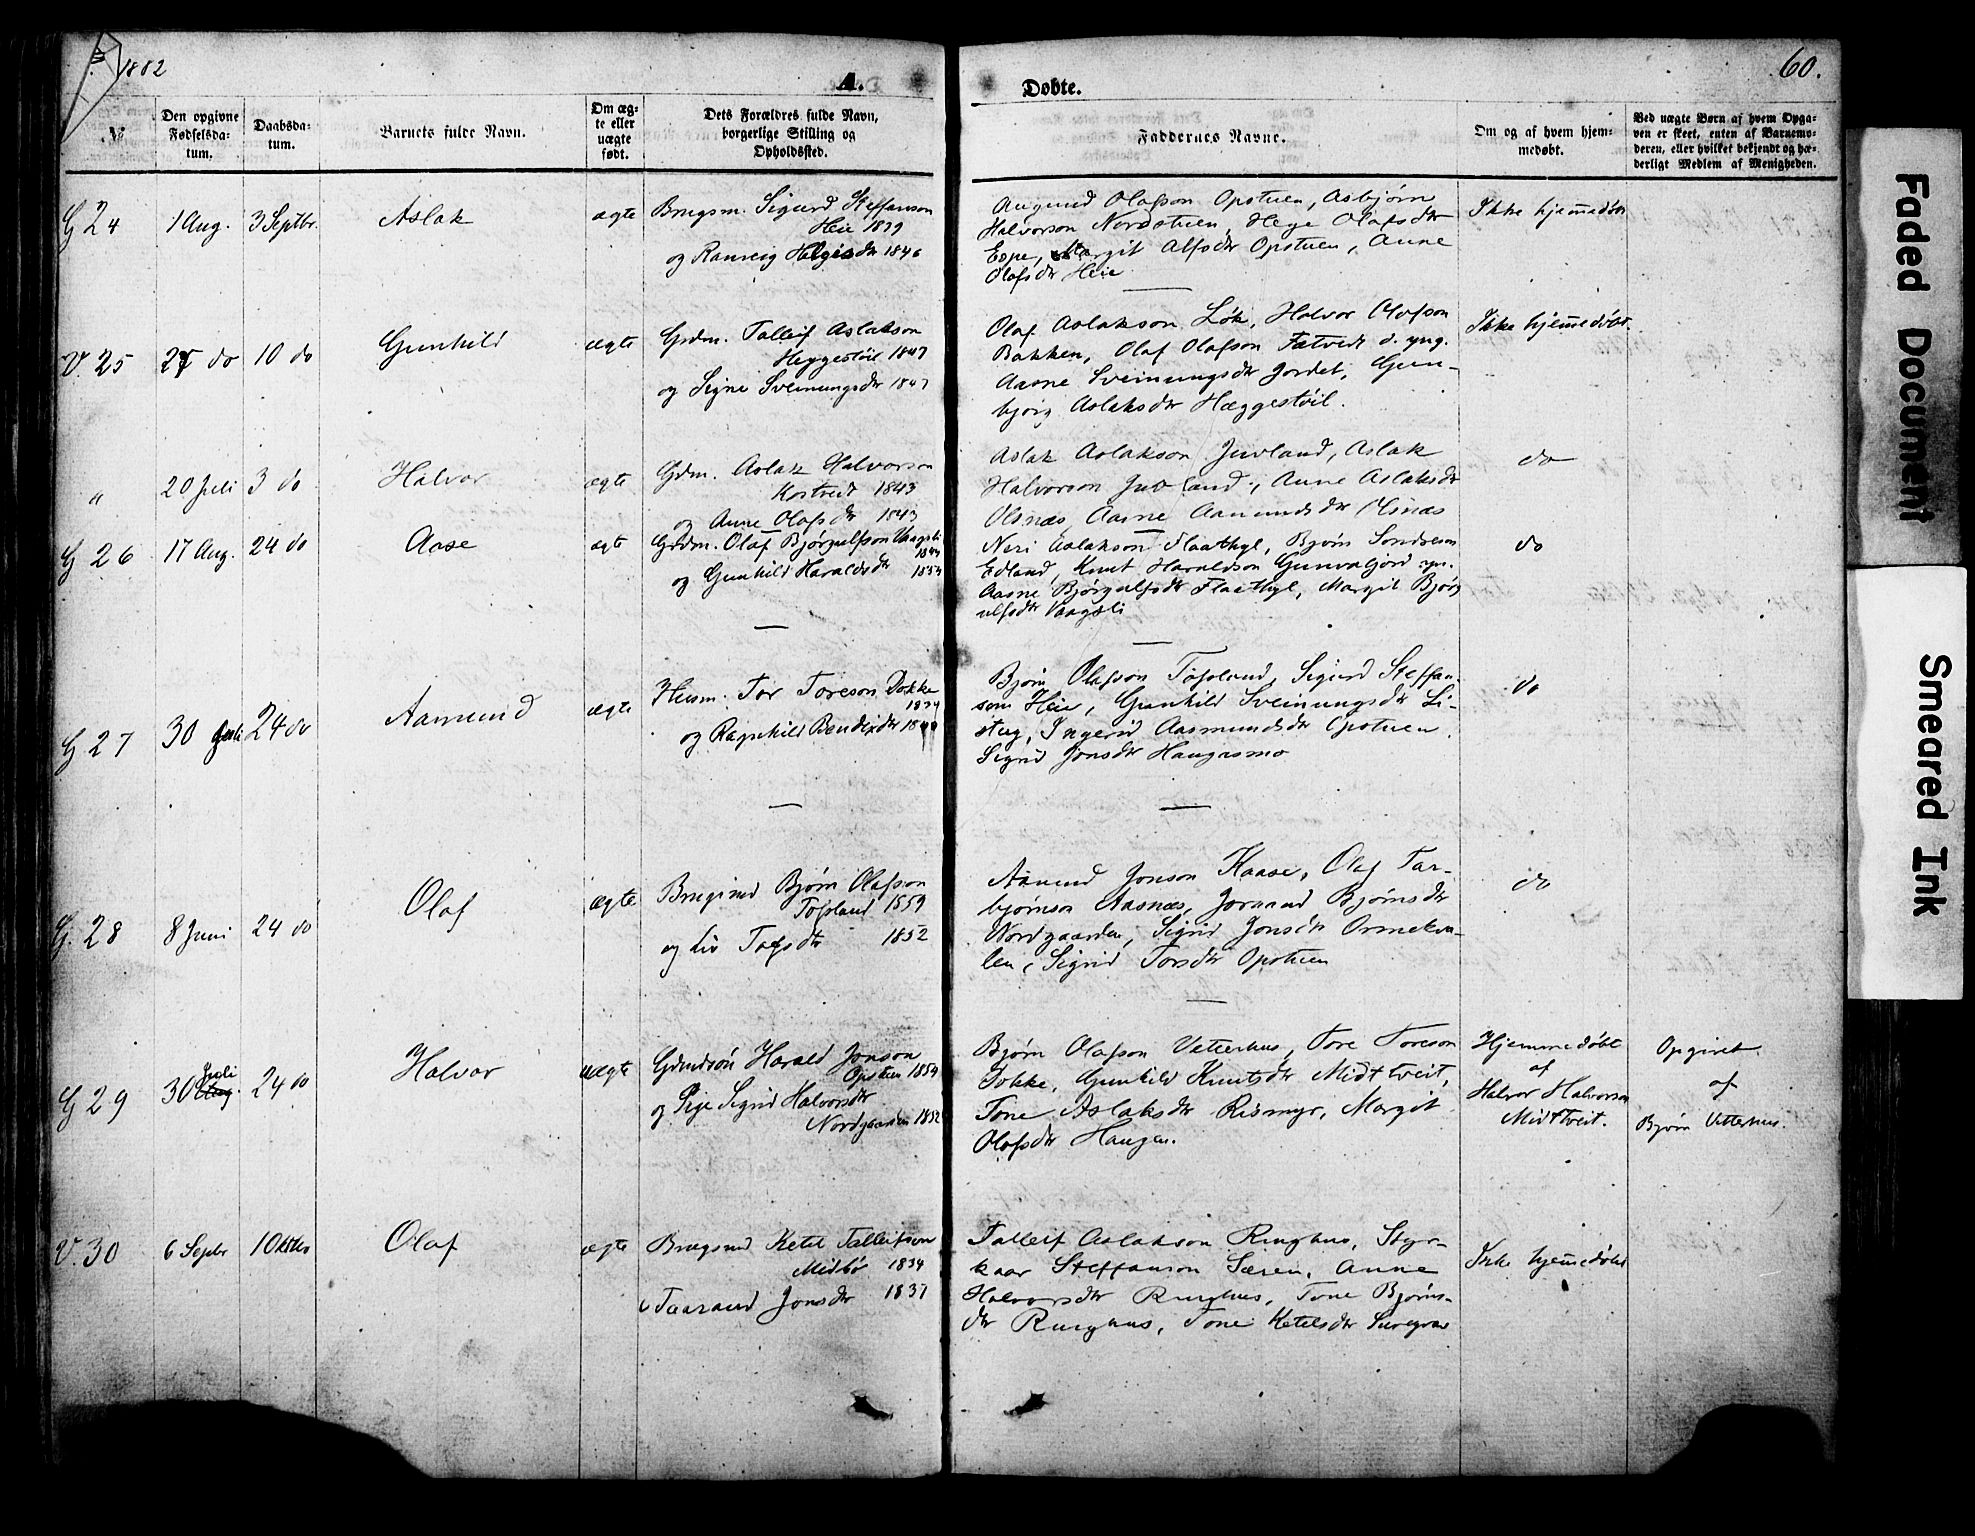 1882
A.
Døbte.
60.
№
Den opgivne Fødselsdatum.
Daabsdatum.
Barnets fulde Navn.
Om ægte eller uægte født.
Dets Forældres fulde Navn, borgerlige Stilling og Opholdssted.
Faddernes Navne.
Om og af hvem hjemmedøbt.
Ved uægte Børn af hvem Opgaven er skeet, enten af Barnemoderen, eller hvilket bekjendt og hæderligt Medlem af Menigheden.
G 24
1 Aug.
3 Septbr.
Aslak
ægte
Brugsm. Sigurd Steffanson
Heie 1839
og Ranveig Helgesdtr 1846
Augund Olafson Opstuen, Asbjørn
Halvorson Nordstuen, Hege Olafsdtr
Espe, Margit Alfsdtr Opstuen, Anne
Olafsdtr Heie
Ikke hjemmedøbt
V. 25
27 do
10 do
Gunhild
ægte
Grdm. Talleif Aslakson
Heggestøil 1847
og Signe Sveinungsdtr 1847
Olaf Aslakson Løk, Halvor Olafson
Bakken, Olaf Olafson Fætvedt d. yng.
Aasne Sveinungsdtr Jordet, Gun-
bjørg Aslaksdtr Hæggestøil.
Ikke hjemmedøbt.
"
20 Juli
3 do
Halvor
ægte
Grdm. Aslak Halvorson
Kostvedt 1843
og Anne Olafsdtr 1843
Aslak Aslakson Juvland, Aslak
Halvorson Juvland, Anne Aslaksdtr
Olsnæs Aasne Aamundsdtr Olsnæs
do
G 26
17 Aug.
24 do
Aase
ægte
Grdm. Olaf Bjørgulfson Vaagsli
1844
og Gunhild Haraldsdtr 1854
Neri Aslakson Flaathyl, Bjørn Sondreson
Edland, Knut Haraldson Gunvaljord yn.
Aasne Bjørgulfsdtr Flaathyl, Margit Bjørg
ulfsdtr Vaagsli
do
G 27
30 Juli
24 do
Aamund
ægte
Husm. Tor Toreson Dokke
1834
og Ragnhild Bendixdtr
Bjørn Olafson Tofsland, Sigurd Steffan-
son Heie, Gunhild Sveinungsdtr Li-
stug, Ingerid Aasmundsdtr Opstuen.
Sigrid Jonsdtr Haugasmo
do
G. 28
8 Juni
24 do
Olaf
ægte
Brugsmd Bjørn Olafson
Tofsland 1859
og Liv Torsdtr 1852
Aamund Jonson Haase, Olaf Tar-
bjørnson Aasnæs, Joraand Bjørnsdtr
Nordgaarden, Sigrid Jonsdtr Ormekva-
len, Sigrid Torsdtr Opstuen
do
G 29
30 Juli
24 do
Halvor
uægte
Grdmdsøn Harald Jonson
Opstuen 1854
og Pige Sigrid Halvorsdtr
Nordgaarden 1852
Bjørn Olafson Vetterhus, Tore Toreson
Dokke, Gunhild Knutsdtr Midttveit,
Tone Aslaksdtr Rismyr, Margit
Olafsdtr Haugen.
Hjemmedøbt
af
Halvor Halvorson
Midttveit.
Opgivet
af
Bjørn Vetterhus.
V. 30
6 Septbr
1 Oktbr
Olaf
ægte
Brugsmd Ketil Talleifson
Midbø 1834
Taaraand Jonsdtr 1837
Talleif Aslakson Ringhus, Styr-
kaar Steffanson Særen, Anne
Halvorsdtr Ringhus, Tone Bjørns-
dtr Ringhus, Tone Ketelsdtr
Ikke hjemmedøbt
Faded Document
Smeared Ink